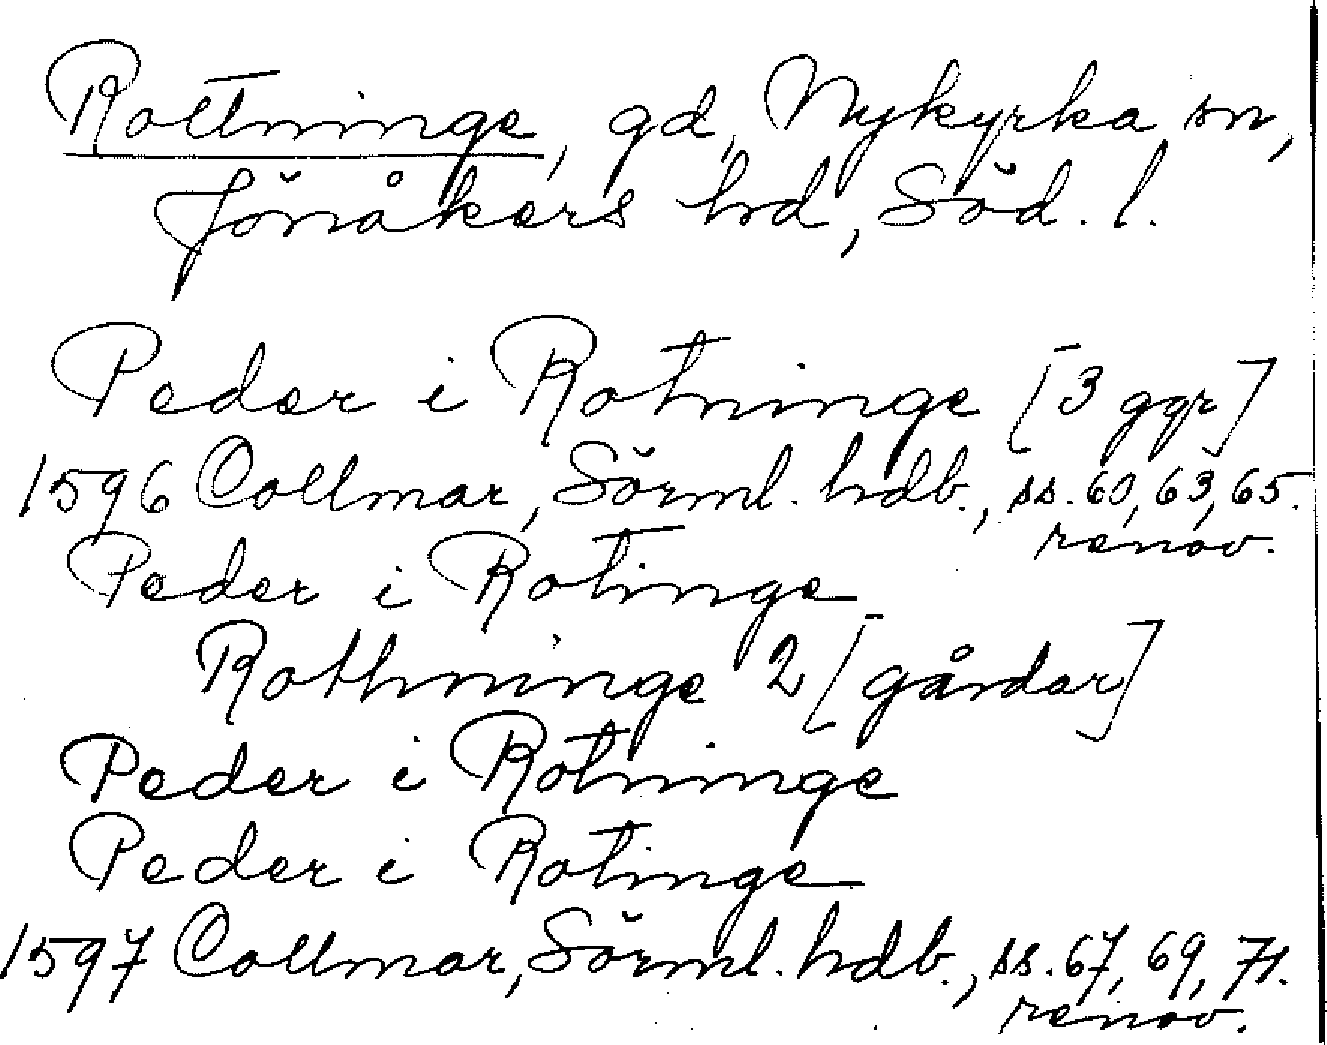 Rottninge, gd, Nykyrka sn,
Jönåkers hd, Söd. l.
Peder i Rotninge [3 ggr]
1596 Collmar, Sörml. hdb., ss. 60, 63, 65.
renov.
Peder i Rotinge
Rothninge 2 [gårdar]
Peder i Rotninge
Peder i Rotinge
1597 Collmar, Sörml. hdb., ss. 67, 69, 71.
renov.